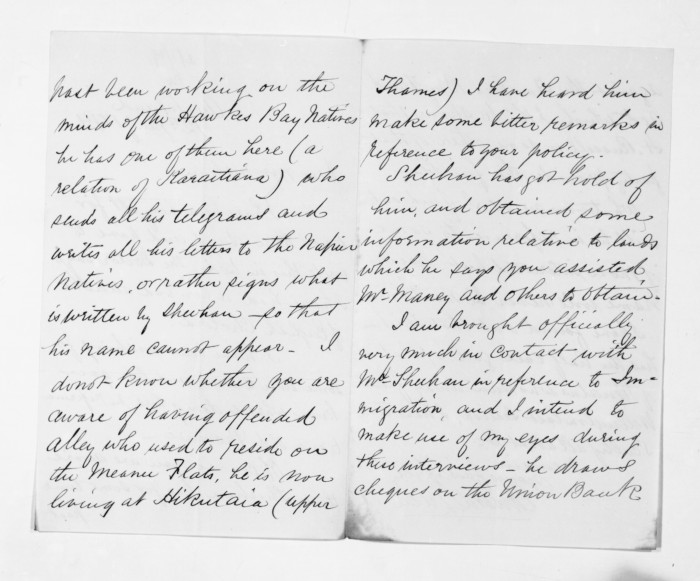 past been working on the
minds of the Hawkes Bay Natives
he has one of them here (a
relation of Karaitiana) who
sends all his telegrams and
writes all his letters to the Napier
Natives, or rather signs what
is written by Sheehan - so that
his name cannot appear - I
do not know whether you are
aware of having offended
Alley who used to reside on
the Meanee Flats, he is now
living at Hikutaia (upper
Thames) I have heard him
make some bitter remarks in
reference to your policy.
Sheehan has got hold of
him, and obtained some
information relative to lands
which he says you assisted
Mr. Maney and others to obtain -
I am brought officially
very much in contact with
Mr. Sheehan in reference to Im-
migration, and I intend to
make use of my eyes during
these interviews - he draws
cheques on the Union Bank